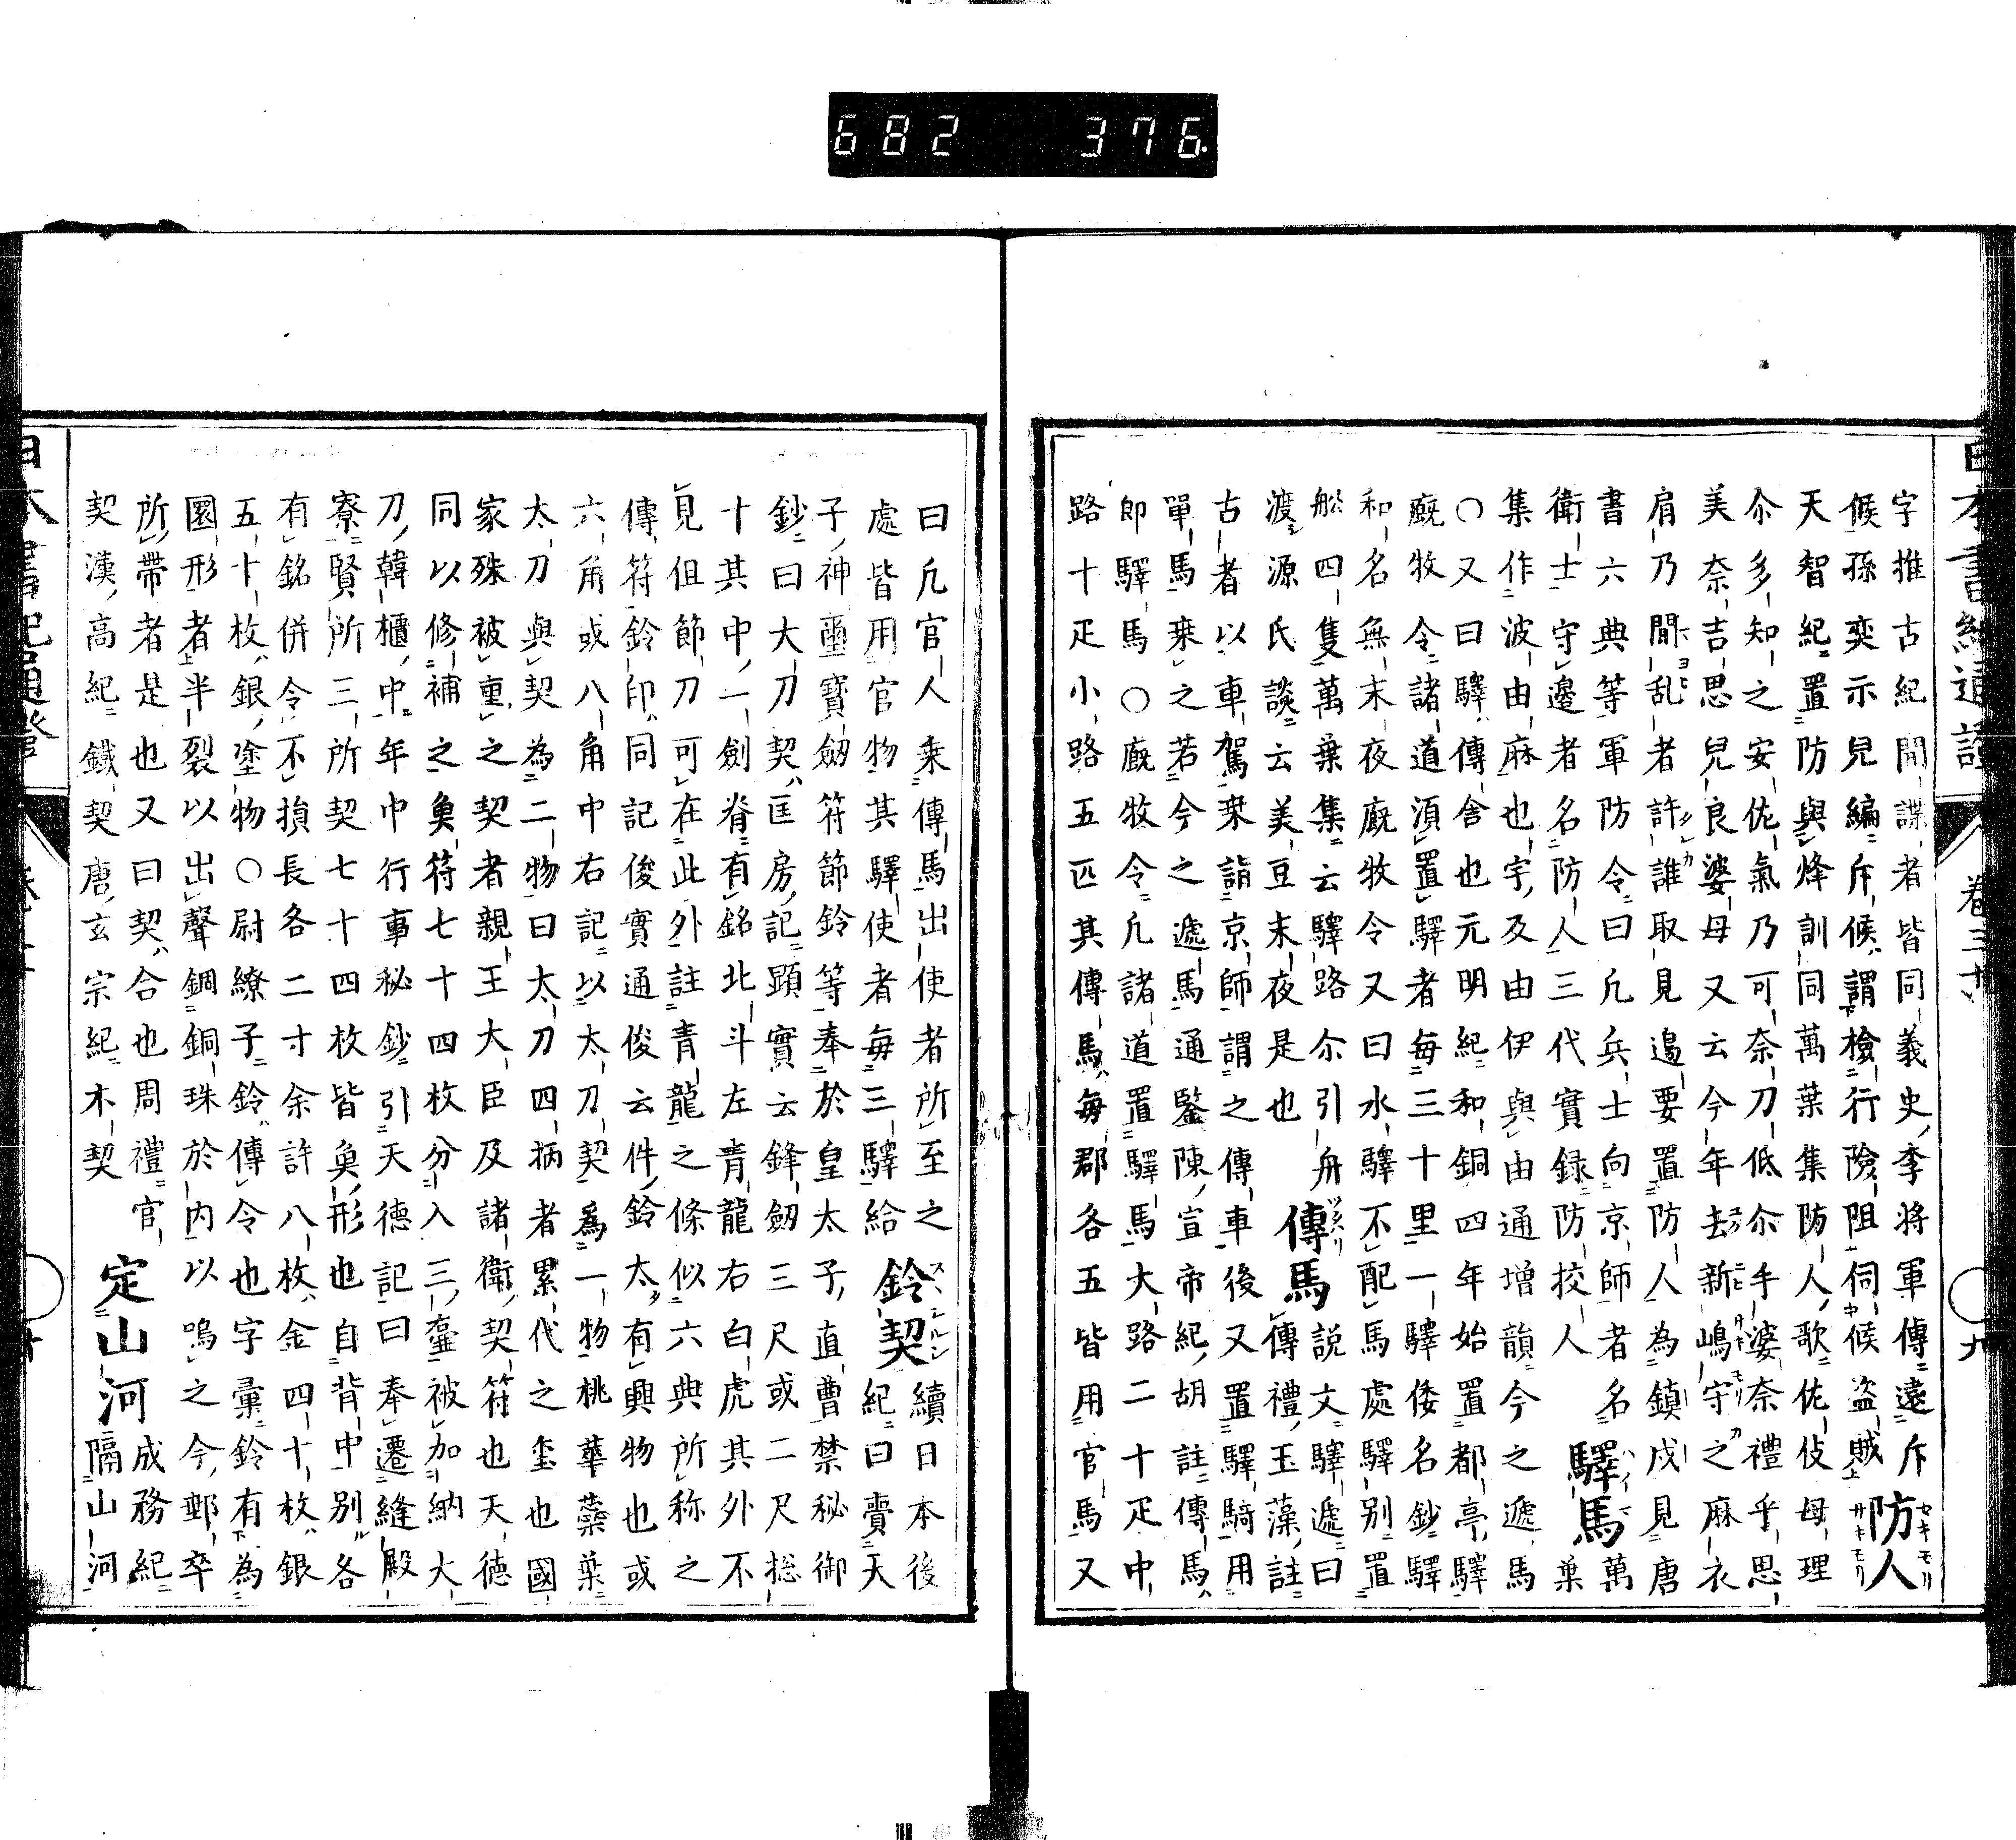 682 376
日本書紀通證 卷三十 九
字推古紀間諜者皆同義史李將軍傳遠斥
候孫奕示兒編斥候謂檢行險阻伺候盜賊 防人セキモリサキモリ
天智紀置防與烽訓同萬葉集防人歌佐伎母理
尒多知之安佐氣乃可奈刀低尒手婆奈禮乎思
美奈吉思兒良婆母又云今年去新嶋守之麻衣
肩乃間乱者許誰取見邉要置防人為鎮戍見唐
書六典等軍防令曰凡兵士向京師者名
衛士守邊者名防人三代實録防挍人 驛馬 萬葉
集作波由麻也宇及由伊與由通增韻今之遞馬
〇又曰驛傳舎也元明紀和銅四年始置都亭驛
廐牧令諸道湏置驛者每三十里一驛倭名鈔驛
和名無末夜廐牧令又曰水驛不配馬處驛別置
舩四隻萬葉集云驛路尒引舟
渡源氏談云美豆末夜是也 傳馬 説文驛遞曰傳禮玉藻註
古者以車駕椉詣京師謂之傳車後又置驛騎用
單馬椉之若今之遞馬通鑒陳宣帝紀胡註傳馬
即驛馬〇廐牧令凡諸道置驛馬大路二十疋中
路十疋小路五匹其傳馬每郡各五皆用官馬又
曰凡官人乗傳馬出使者所至之
處皆用官物其驛使者每三驛給 鈴契 續日本後紀曰賷天
子神璽寶劒符節鈴等奉於皇太子直曹禁秘御
鈔曰大刀契匡房記顕實云鋒劒三尺或二尺揔
十其中一劍脊有銘北斗左青龍右白虎其外不
見但節刀可在此外註青龍之條似六典所称之
傳符鈴印同記俊實通俊云件鈴太有興物也或
六角或八角中右記以太刀契為一物桃華蘂葉
太刀與契為二物曰太刀四柄者累代之宝也國
家殊被重之契者親王大臣及諸衛契符也天德
同以修補之奐符七十四枚分入三臺被加納大
刀韓櫃中年中行事秘鈔引天徳記曰奉遷縫殿
寮賢所三所契七十四枚皆奐形也自背中別各
有銘併令不損長各二寸余許八枚金四十枚銀
五十枚銀塗物〇尉繚子鈴傳令也字彙鈴有為
圜形者半裂以出聲錮銅珠於内以鳴之今郵卒
所帶者是也又曰契合也周禮官
契漢高紀鐵契唐玄宗紀木契 定山河 成務紀隔山河